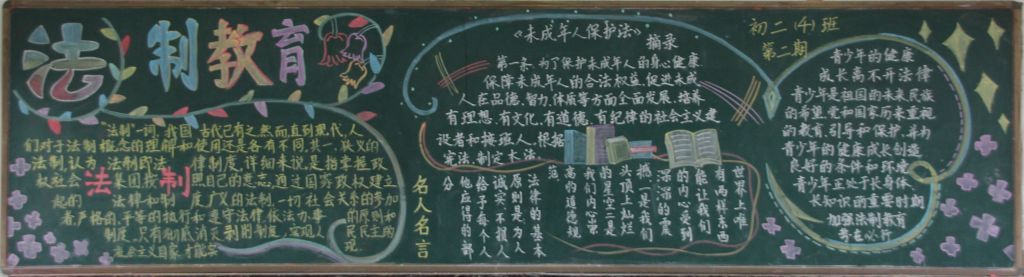 法制教育
"法制"一词,我国古代已有之,然而直到现代,人
们对于法制概念的理解和使用还是各有不同,其一,狭义的
法制,认为,法制即法 律制度,详细来说,是指掌握政
权社会 法 集团按 制 照自己的意志,通过国家政权建立
起的 法律和制 度广义的法制,一切社会关系的参加
者严格的,平等的执行和遵守法律,依法办事 的原则和
制度,只有彻底消灭剥削制度,实现人 民民主的
社会主义国家才能实 现
《未成年人保护法》摘录
第一条.为了保护未成年人的身心健康
保障未成年人的合法权益,促进未成
人在品德,智力,体质等方面全面发展,培养
有理想,有文化,有道德,有纪律的社会主义建
设者和接班人,根据
宪法 制定本法
名人名言
世界上唯
有两样东西
能让我们
的内心受到
深深的震
撼,一是我们
头顶上灿烂
的星空二是
我们内心崇
高的道德规
范
法律的基本
原则是:为人
诚实,不损人
给予每个人
他应得的部
分
初二(4)班
第二期
青少年的健康
成长离不开法律
青少年是祖国的未来,民族
的希望,党和国家历来重视
的教育,引导和保护,并为
青少年的健康成长创造
良好的条件和环境
青少年正处于长身体
长知识的重要时期
加强法制教育
势在必行